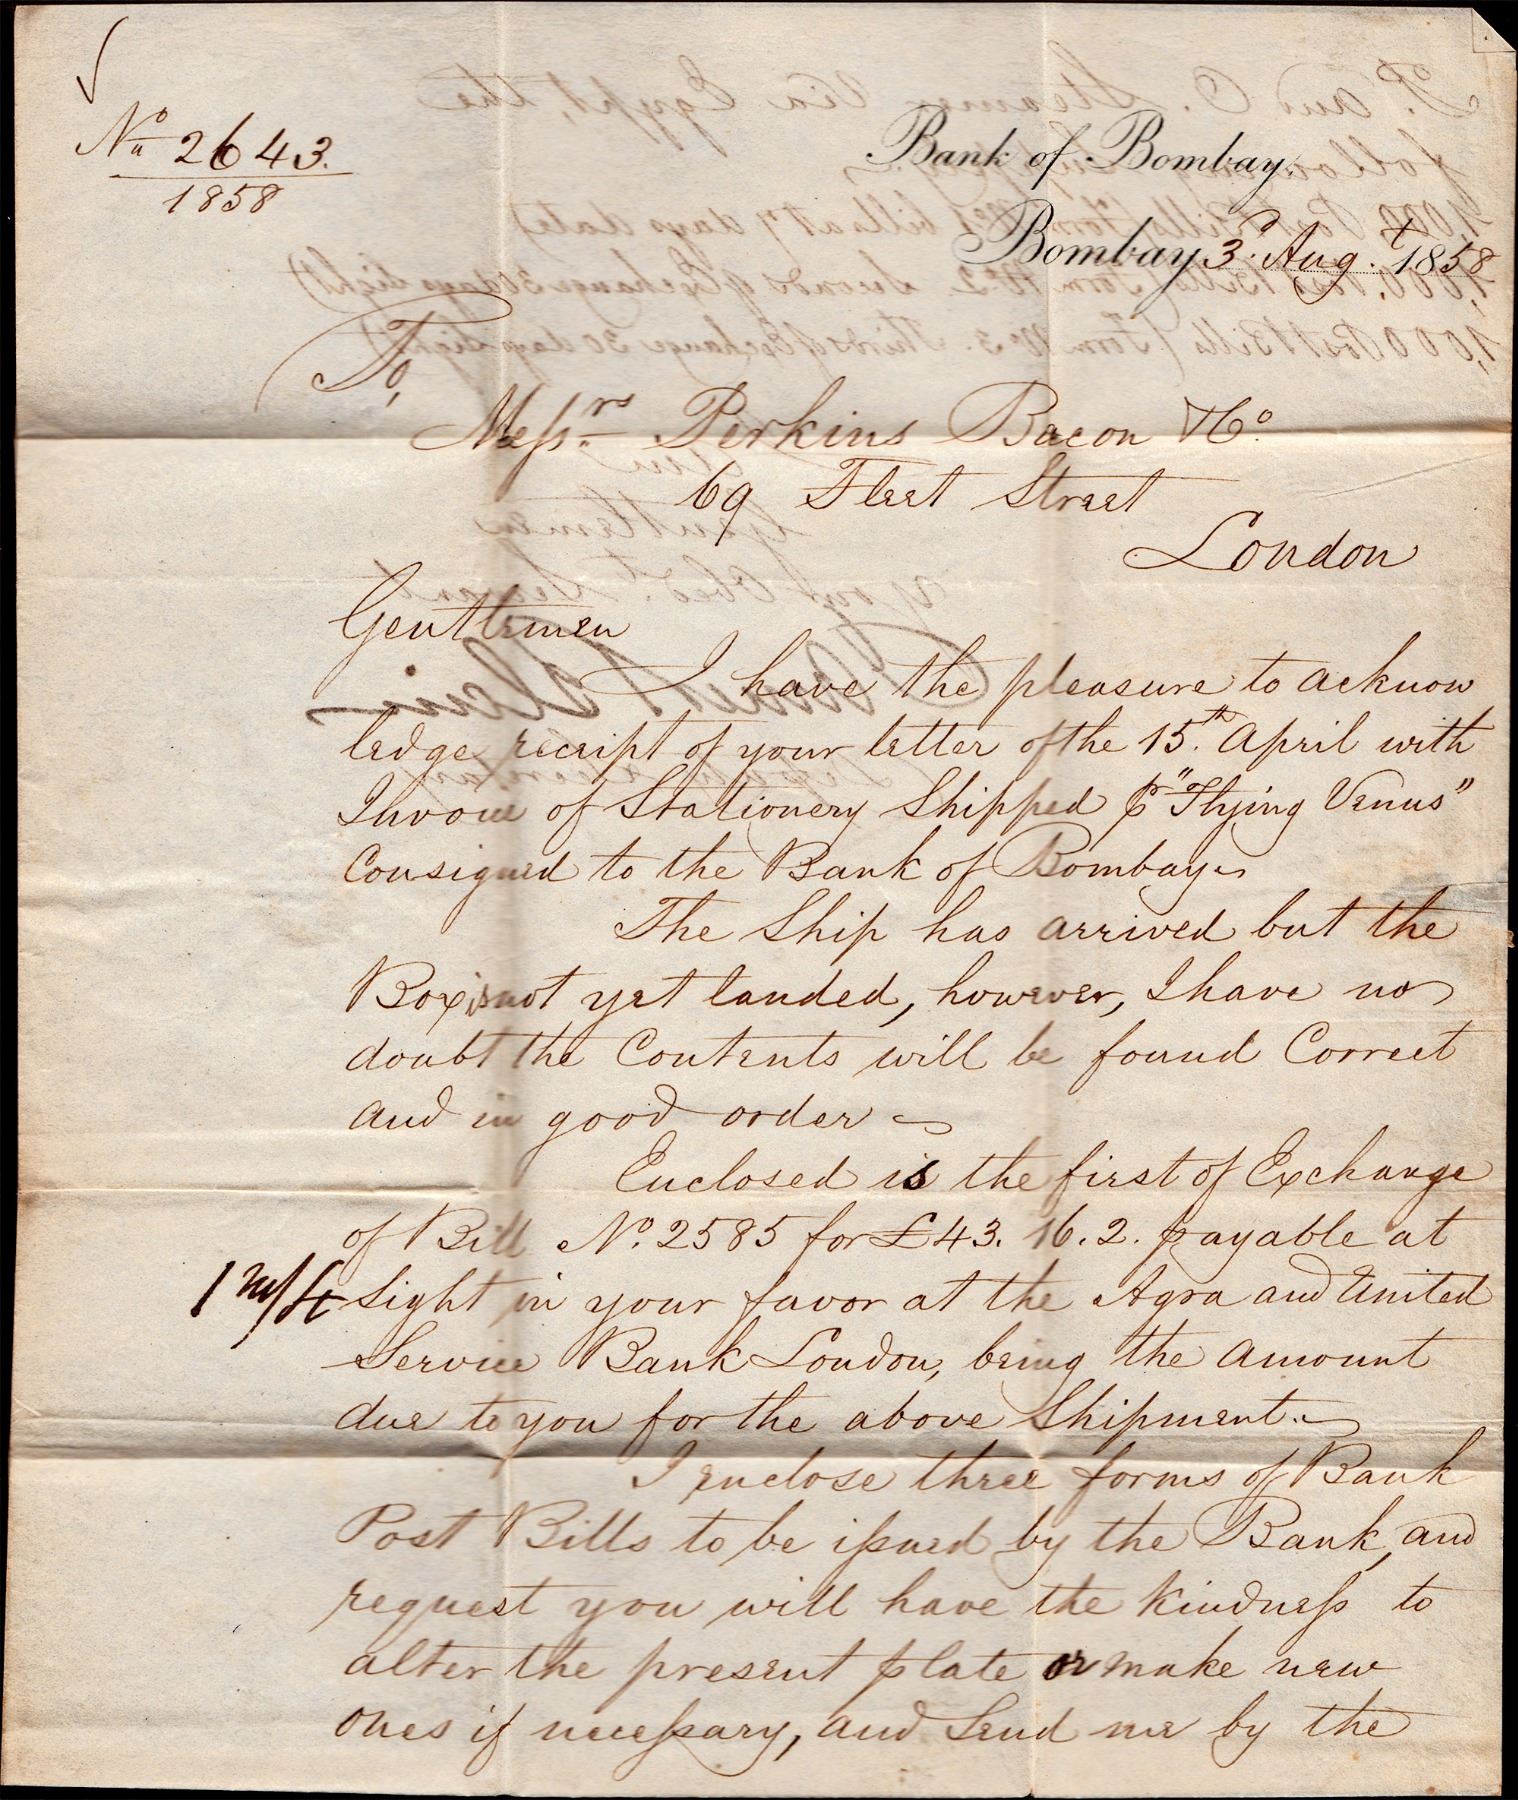 No 2643.
1858
Bank of Bombay.
Bombay 3d Aug. 1858
To,
Messrs Perkins Bacon & Co.
69 Fleet Street
London
Gentlemen
I have the pleasure to acknow
ledge receipt of your letter of the 15th April with
Invoice of Stationery Shipped ⅌ "Flying Venus"
Consigned to the Bank of Bombay
The Ship has arrived but the
Box is not yet landed, however, I have no
doubt the Contents will be found Correct
and in good order
Enclosed is the first of Exchange
of Bill No. 2585 for £43. 16. 2. payable at
1 m/4
Sight in your favor at the Agra and United
Service Bank London, being the amount
due to you for the above Shipment.
I enclose three forms of Bank
Post Bills to be issued by the Bank, and
request you will have the kindness to
alter the present plate or make new
ones if necessary, and Send me by the